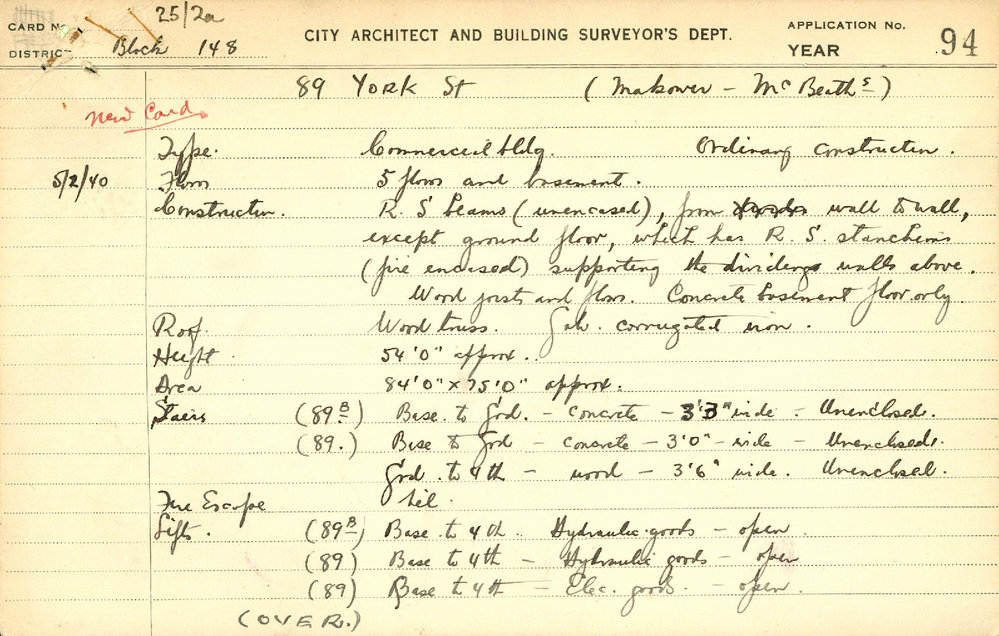 CARD No. 25/2a
CITY ARCHITECT AND BUILDING SURVEYOR'S DEPT.
APPLICATION No.
DISTRICT Block 148
YEAR 94
89 YORK St (Makower – McBeath's)
New Card
Type. Commercial bldg. Ordinary construction.
5/2/40 Floors 5 floors and basement.
Construction. R. S beams (unencased), from wall to wall,
except ground floor, which has R. S. stanchions
(fire encased) supporting the dividing walls above.
Wood joists and floors. Concrete basement floor only.
Roof Wood truss. Galv. corrugated iron.
Height. 54'0" approx.
Area 84'0" x 75'0" approx.
Stairs (89B) Base. to Grd. – concrete – 3'3" wide – Unenclosed.
(89.) Base to Grd – concrete – 3'0" – wide – Unenclosed.
Grd. to 4th – wood – 3'6" wide. Unenclosed.
Fire Escape Nil.
Lifts. (89B) Base to 4th. Hydraulic goods – open
(89) Base to 4th – Hydraulic goods – open
(89) Base to 4th – Elec. goods – open.
(OVER.)